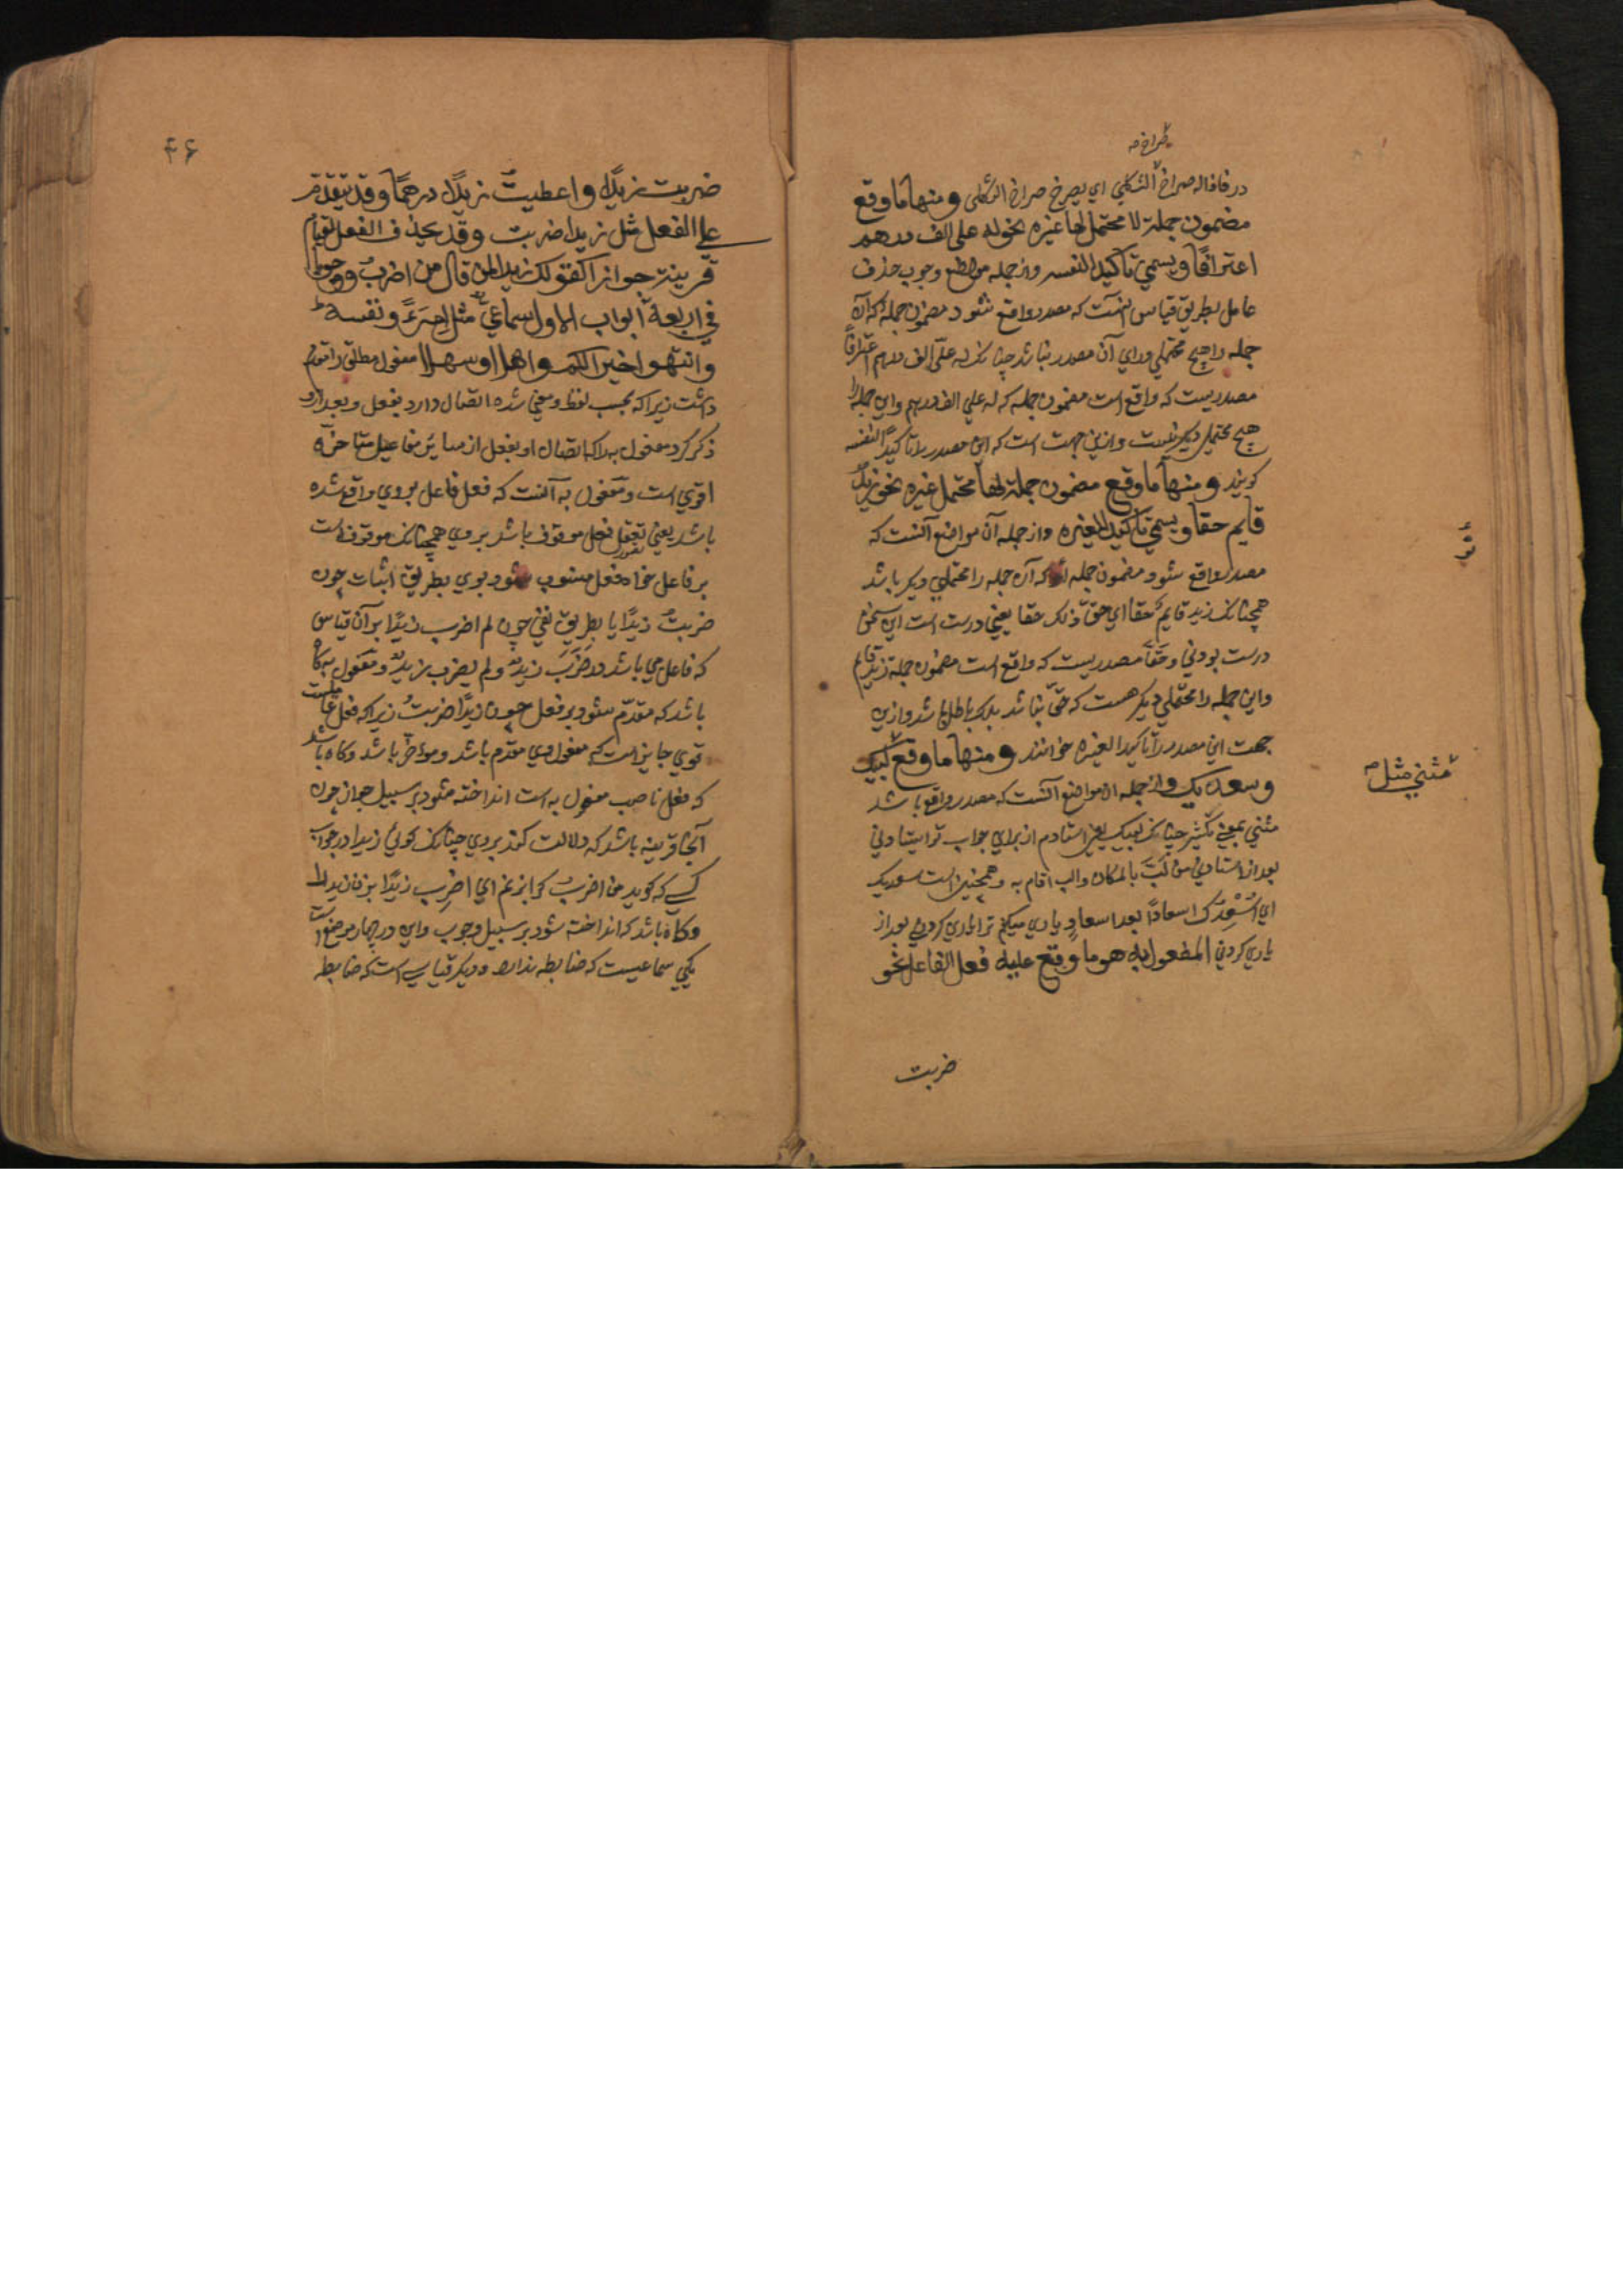 يصرخ صه
در فاذا له صراخ الثكلي اي يصرخ صراخ الثكلي ومنها ما وقع
مضمون جملة لا محتمل لها غيره نحو له على الف درهم
اعترافا ويسمي تاكيدا لنفسه واز جمله مواضع وجوب حذف
عامل بطريق قياس آنست كه مصدر واقع شود مضمون جمله كه آن
جمله را هيچ محتملي وراي آن مصدر نباشد چنانكه له عليّ الف درهم اعترافاً
مصدريست كه واقع است مضمون جمله كه له علي الف درهم واين جمله را
هيچ محتملي ديكر نيست وازين جهت است كه اين مصدر را تاكيداً لنفسه
كويند ومنها ما وقع مضمون جملة لها محتمل غيره نحو زيدٌ
قايم حقا ويسمي تاكيدا لغيره واز جمله آن مواضع آنست كه
مصدر واقع شود مضمون جمله كه آن جمله را محتملي ديكر باشد
همچنانكه زيد قايم حقا اي حقّ ذلك حقا يعني درست است اين سخن
درست بودني وحقاً مصدريست كه واقع است مضمون جمله زيد قايم
واين جمله را محتملي ديكر هست كه حق نباشد بلكه باطل باشد وازين
جهت اين مصدر را تاكيدا لغيره خوانند ومنها ما وقع لبيك
مثني مثل صه
وسعديك واز جمله آن مواضع آنست كه مصدر واقع باشد
مثني بمعني تكثير چنانكه لبيك يعني استادم از براي جواب تو ايستادني
بعد از استادني من لبّ بالمكان والب اقام به وهمچنين است سعديك
اي اُسْعِدُك اسعاداً بعد اسعادٍ ياري ميكنم ترا ياري كردني بعد از
ياري كردني المفعول به هو ما وقع عليه فعل الفاعل نحو
ضربت
۴۶
ضربت زيدًا واعطيت زيدًا درهمًا وقد يتقدم
علي الفعل مثل زيدا ضربت وقد يحذف الفعل لقيام
قرينة جوازا كقولك زيدا لمن قال من اضرب ووجوبا
في اربعة ابواب الاول سماعي مثل امرءً ونفسه
وانتهوا خيرا لكم واهلا وسهلا مفعول مطلق را تقديم
داشت زيرا كه بحسب لفظ ومعني شده اتصال دارد بفعل وبعد ازو
ذكر كرد مفعول به را كه اتصال او بفعل از ساير مفاعيل متاخره
اقوي است ومفعول به آنست كه فعل فاعل بروي واقع شده
باشد يعني تعقل فعل موقوف باشد بروي همچنانكه موقوف است
بر فاعل خواه فعل منسوب شود بوي بطريق اثبات چون
ضربتُ زيدًا يا بطريق نفي چون لم اضرب زيدًا بر آن قياس
كه فاعل مي باشد در ضَرَبَ زيدٌ ولم يضرب زيدٌ ومفعول به كاه
باشد كه مقدّم شود بر فعل چون زيدًا ضربتُ زيرا كه فعل عامليست
قوي جايز است كه معمول وي مقدم باشد ومؤخر باشد وكاه باشد
كه فعل ناصب مفعول به است انداخته شود بر سبيل جواز چون
آنجا قرينه باشد كه دلالت كند بروي چنانكه كوئي زيدا در جواب
كسي كه كويد من اضربُ كرا بزنم اي اضرِب زيدًا بزن زيد را
وكاه باشد كه انداخته شود بر سبيل وجوب واين در چهار موضع است
يكي سماعيست كه ضابطه ندارد وديكر قياسي است كه ضابطه